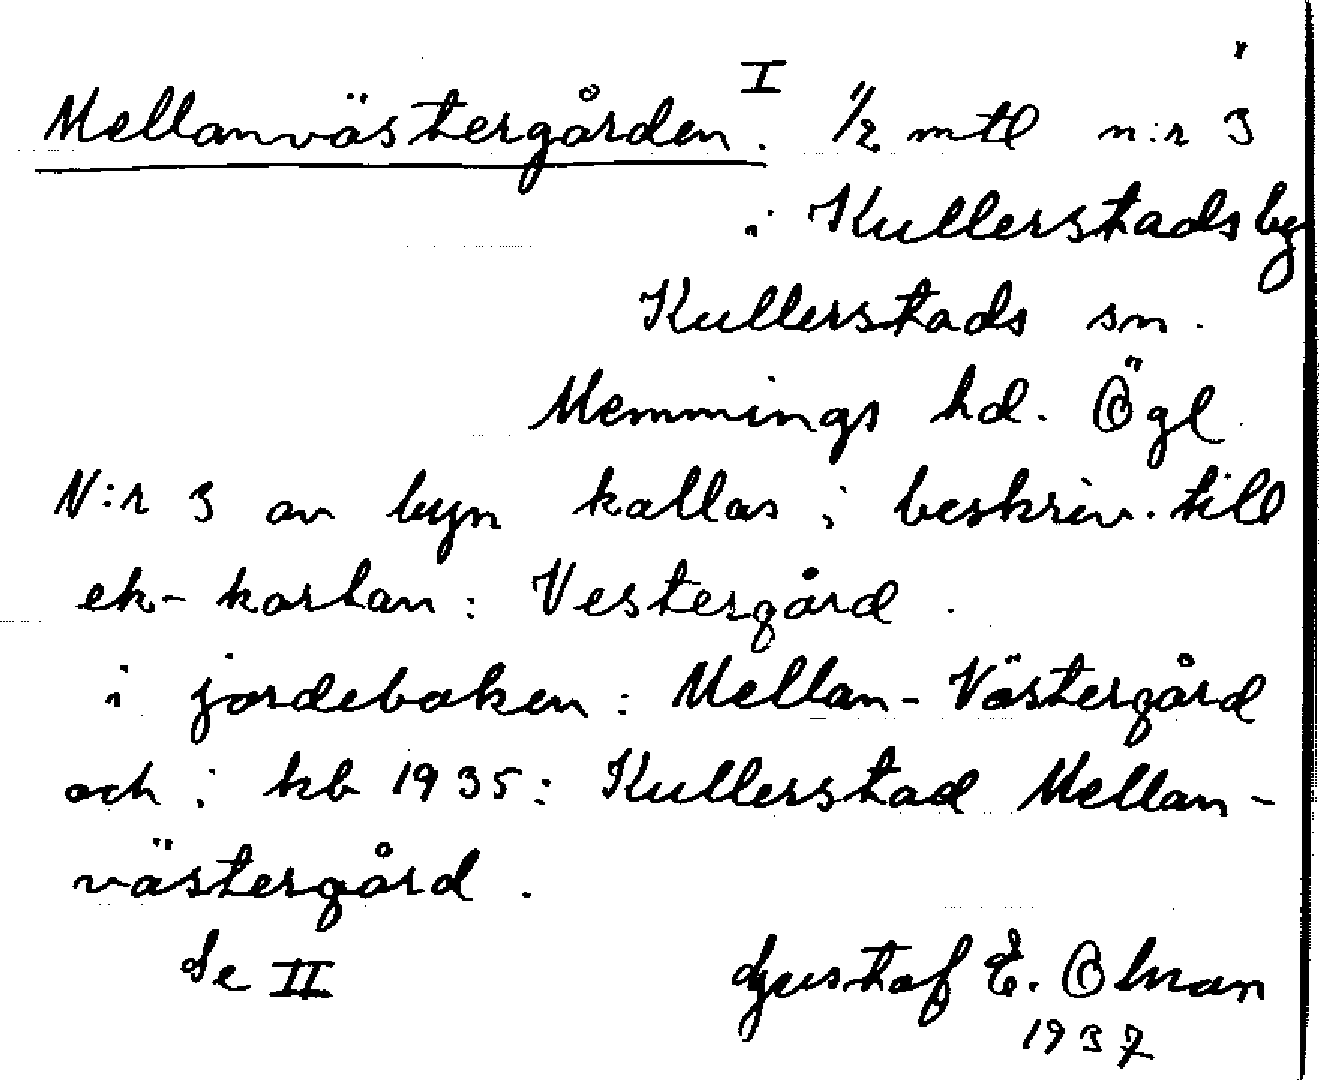 Mellanvästergården. I 1/2 mtl n:r 3
i Kullerstads by
Kullerstads sn.
Memmings hd. Ögl.
N:r 3 av byn kallas i beskriv. till
ek-kartan: Vestergård.
i jordeboken: Mellan-Västergård
och i kb 1935: Kullerstad Mellan-
västergård.
Se II Gustaf E. Olman
1937